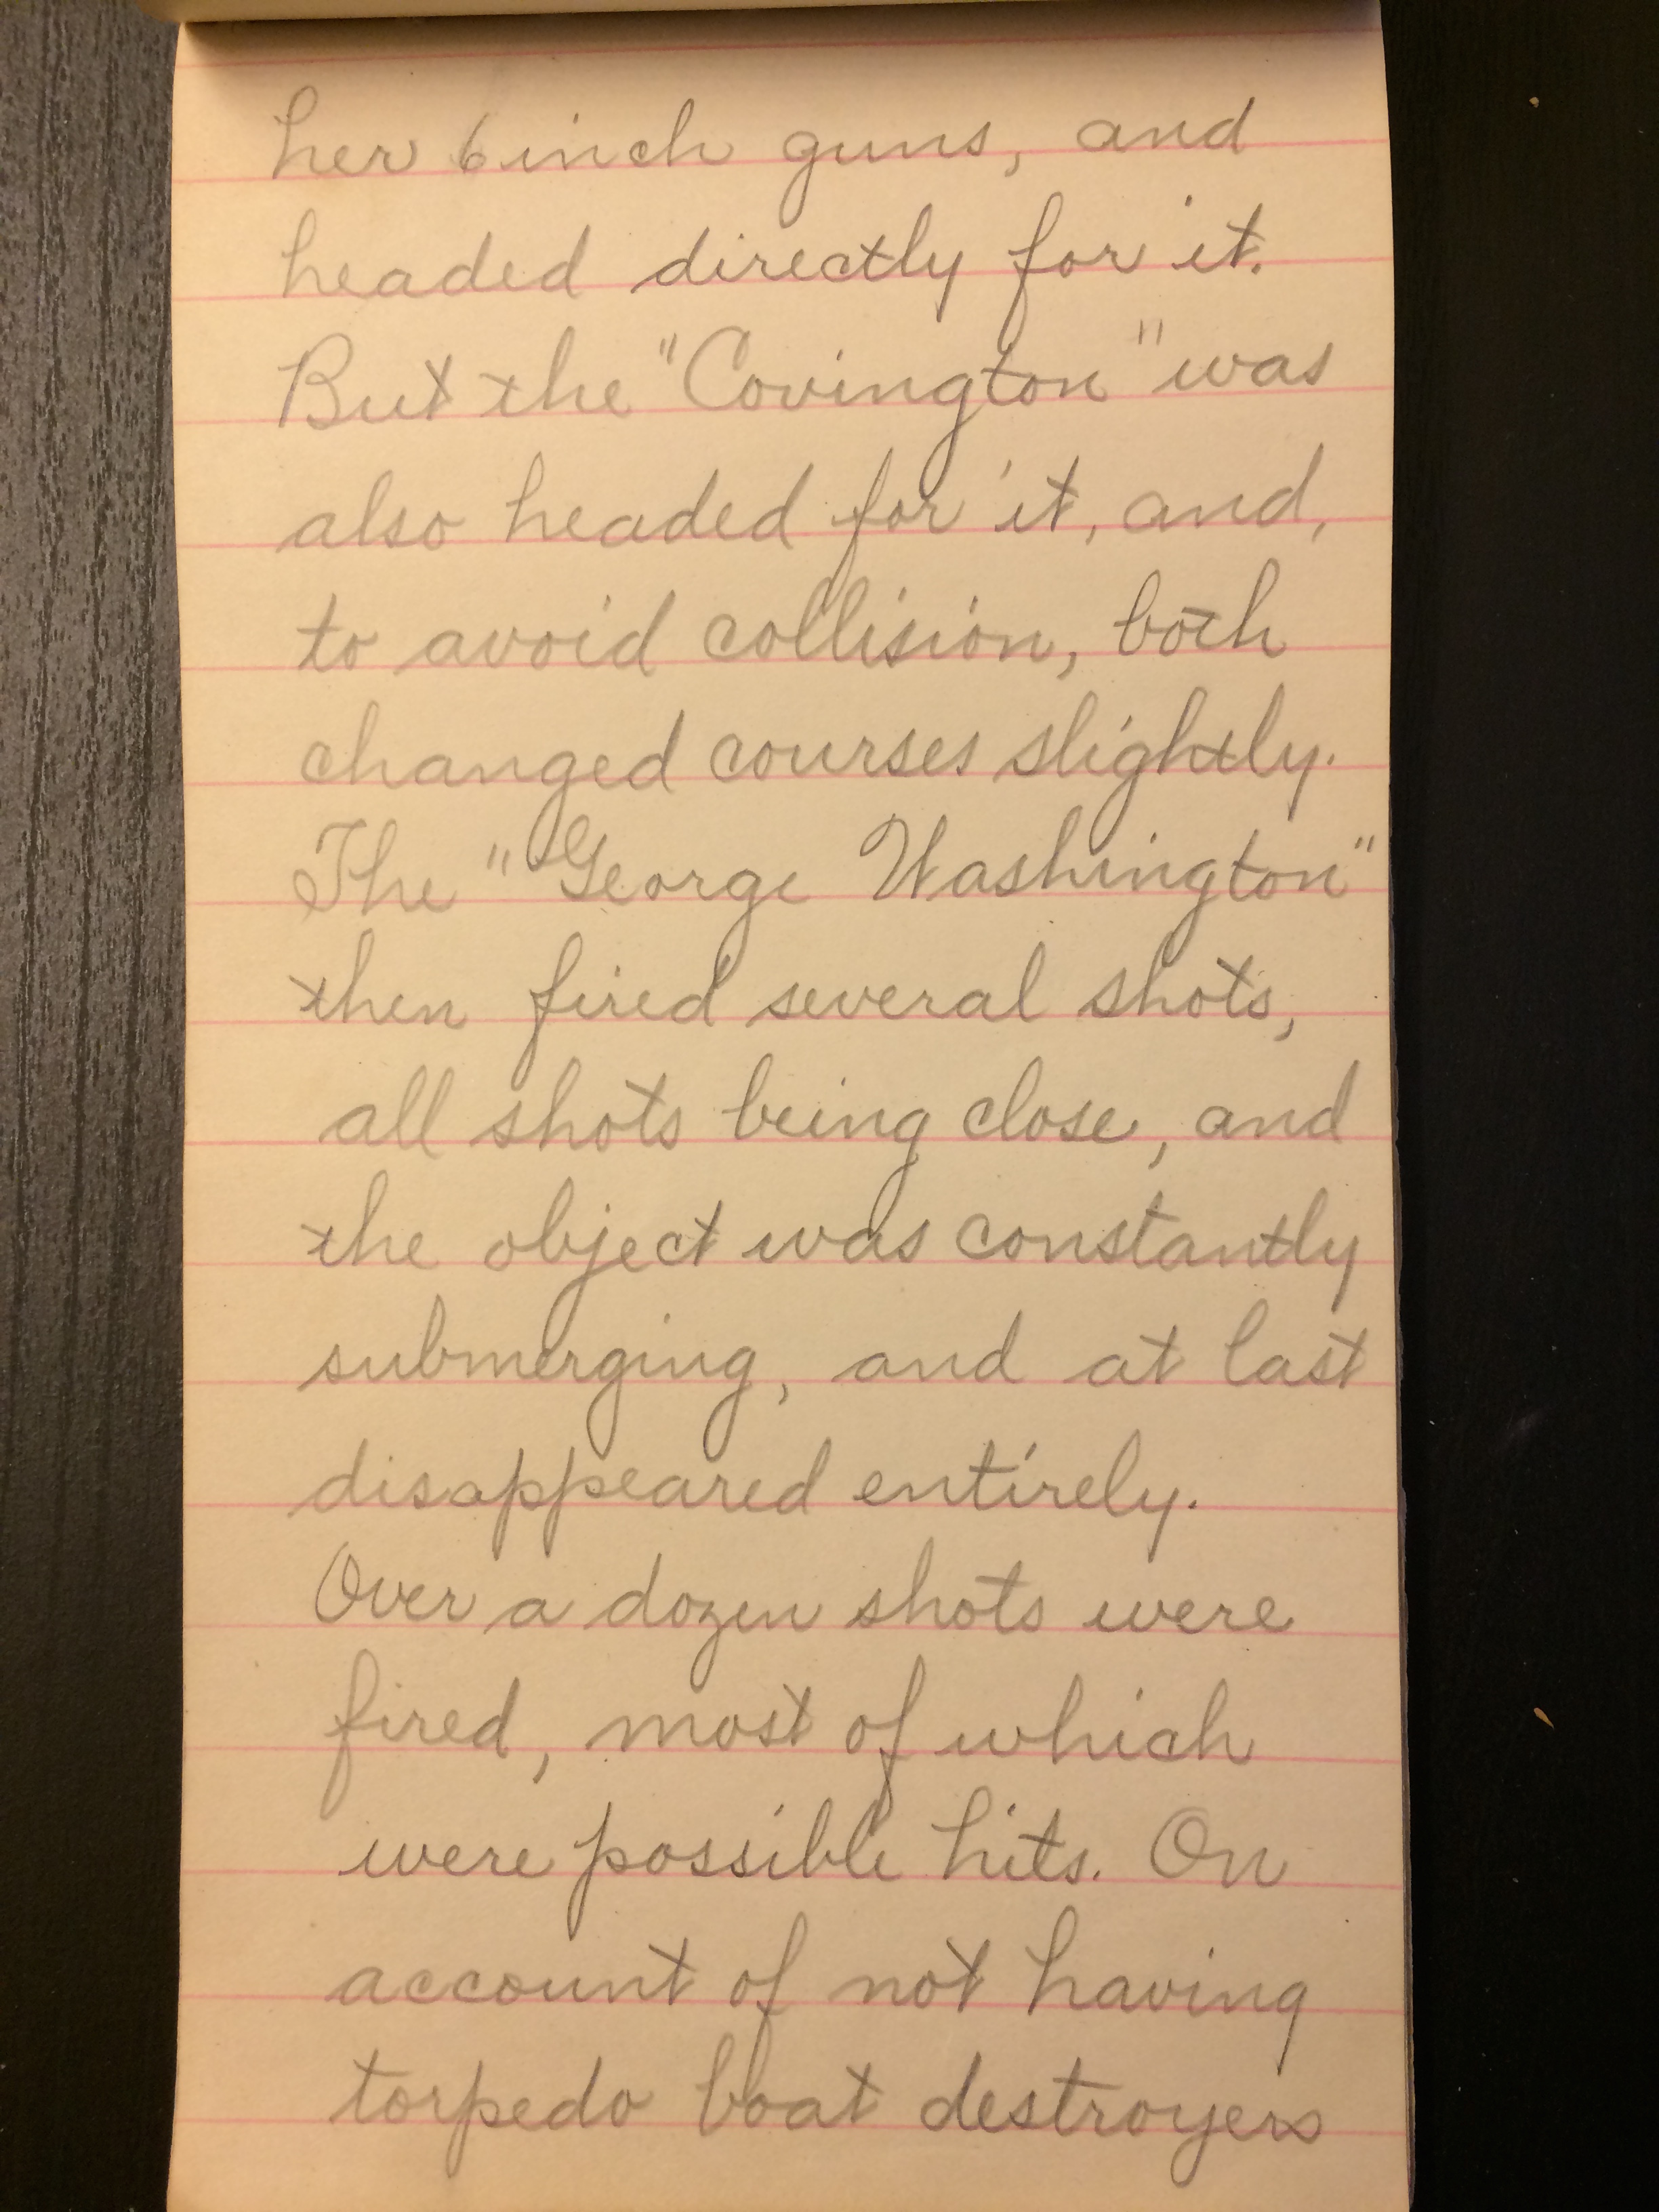 her 6 inch guns, and
headed directly for it.
But the "Covington" was
also headed for it, and,
to avoid collision, both
changed courses slightly.
The "George Washington"
then fired several shots,
all shots being close, and
the object was constantly
submerging, and at last
disappeared entirely.
Over a dozen shots were
fired, most of which
were possible hits. On
account of not having
torpedo boat destroyers